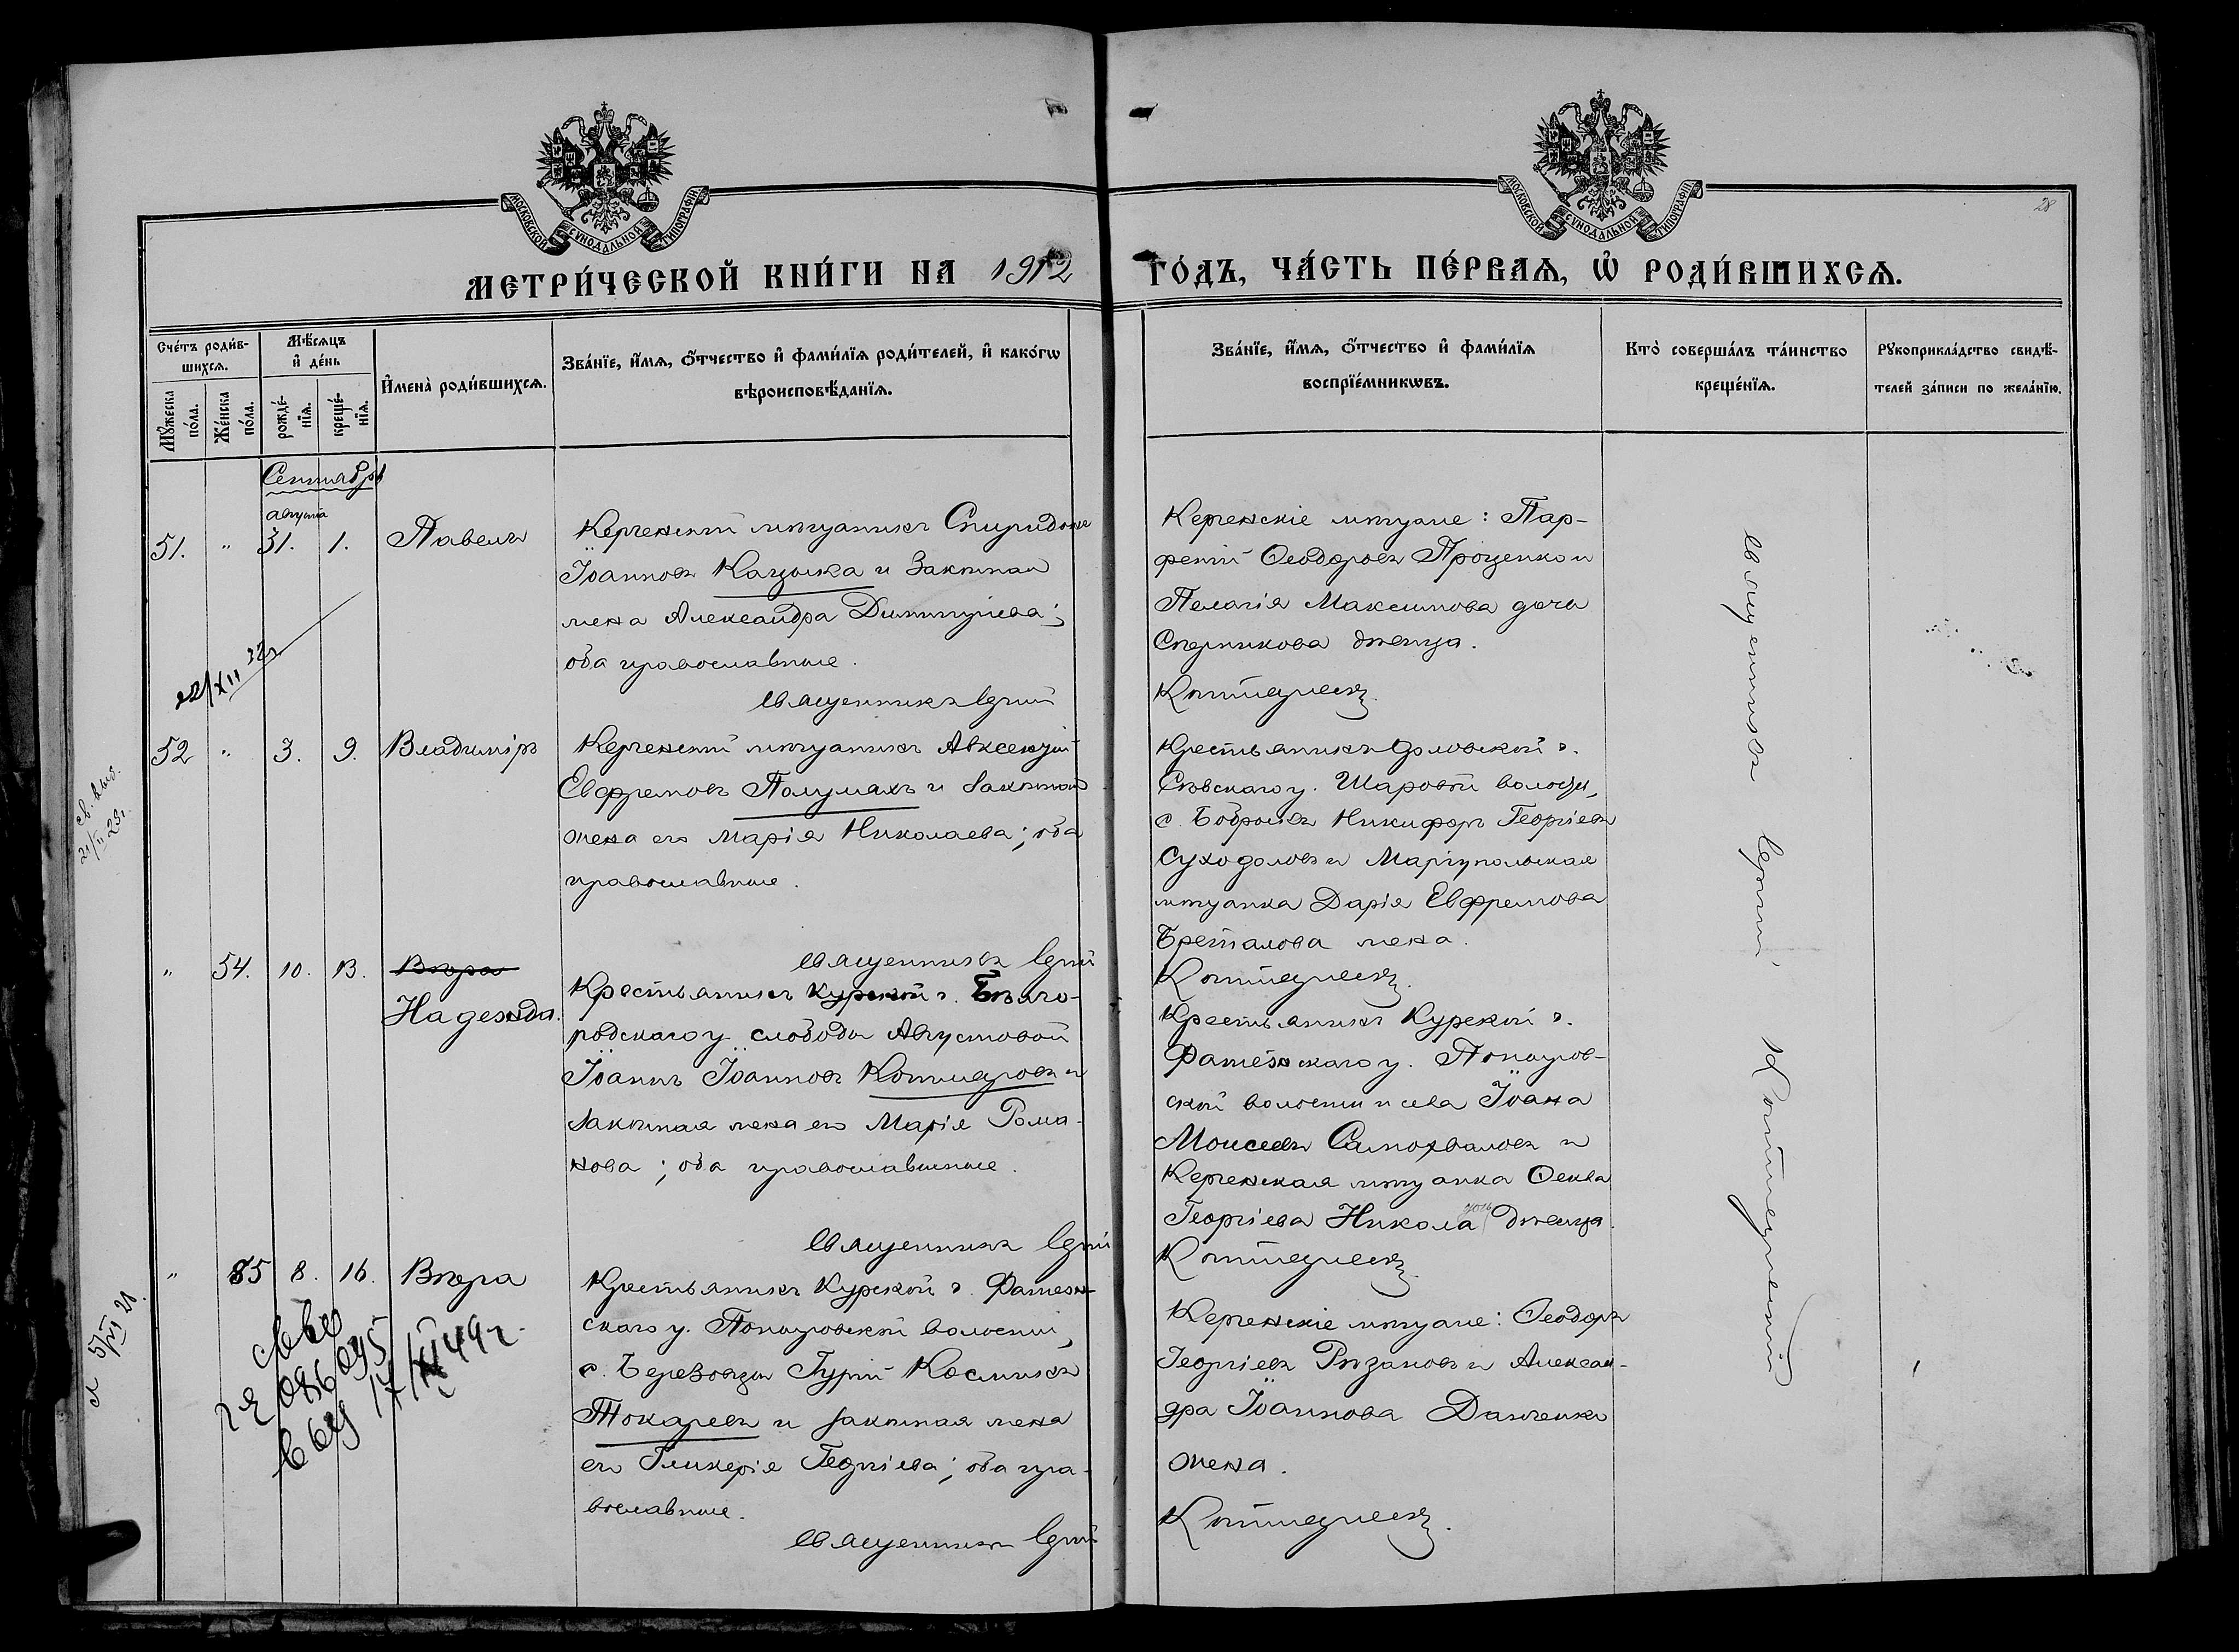 МОСКОВСКОЙ СѴНОДАЛЬНОЙ ТИПОГРАФІИ
МОСКОВСКОЙ СѴНОДАЛЬНОЙ ТИПОГРАФІИ
28
МЕТРИ́ЧЕСКОЙ КНИ́ГИ НА 1912 ГО́ДЪ, ЧА́СТЬ ПЕ́РВАѦ, Ѡ҆ РОДИ́ВШИХСѦ.
Сче́тъ роди́в-
шихсѧ.
Мѣ́сѧцъ
и҆ де́нь
Мꙋ́жеска
по́ла.
Же́нска
по́ла.
рожде́-
нїѧ.
креще́-
нїѧ.
И҆мена̀ роди́вшихсѧ.
Зва́нїе, и҆́мѧ, ѻ҆́тчество и҆ фами́лїѧ роди́телей, и҆ како́гѡ
вѣроисповѣ́данїѧ.
Зва́нїе, и҆́мѧ, ѻ҆́тчество и҆ фами́лїѧ
воспрїе́мникѡвъ.
Кто̀ соверша́лъ та́инство
креще́нїѧ.
Рꙋкоприкла́дство свидѣ́-
телей за́писи по жела́нїю.
Сентябрь
августа
51. " 31. 1. Павелъ
Керченскій мѣщанинъ Спиридонъ
Іоанновъ Кацыка и Законная
жена Александра Димитріева;
оба православные.
Священникъ Сергій
Керченскіе мѣщане: Пар-
феній Ѳеодоровъ Проценко и
Пелагія Максимова дочь
Сперникова дѣвица.
Котляревскій
22/XII 32г.
52 " 3. 9. Владиміръ
Керченскій мѣщанинъ Авксентій
Евфремовъ Полумахъ и Законная
жена его Марія Николаева; оба
православные.
Священникъ Сергій
Крестьянинъ Орловской г.
Сѣвскаго у. Шаровой волости,
с. Бобрыкъ Никифоръ Георгіевъ
Суходоловъ и Маріупольская
мѣщанка Дарія Евфремова
Бреталова жена.
Котляревскій
21/II 23г.
" 54. 10. 13. Вѣра
Надежда.
Крестьянинъ Курской г. Бѣлго-
родскаго у. слободы Августовой
Іоаннъ Іоанновъ Котляровъ и
Законная жена его Марія Рома-
нова; оба православные.
Священникъ Сергій
Крестьянинъ Курской г.
Фатежскаго у. Поныров-
ской волости и села Іоанъ
Моисеевъ Самохваловъ и
Керченская мѣщанка Ѳекла
Георгіева Никола дочь дѣвица.
Котляревскій
" 55 8. 16. Вѣра
Крестьянинъ Курской г. Фатеж-
скаго у. Поныровской волости,
с. Березовца Гурій Косминъ
Токаревъ и законная жена
его Гликерія Георгіева; оба пра-
вославные.
Священникъ Сергій
Керченскіе мѣщане: Ѳеодоръ
Георгіевъ Рѣзановъ и Алексан-
дра Іоаннова Данченко
жена.
Котляревскій
086095
17/XI 49г.
5/VI 21.
Священникъ Сергій Котляревскій